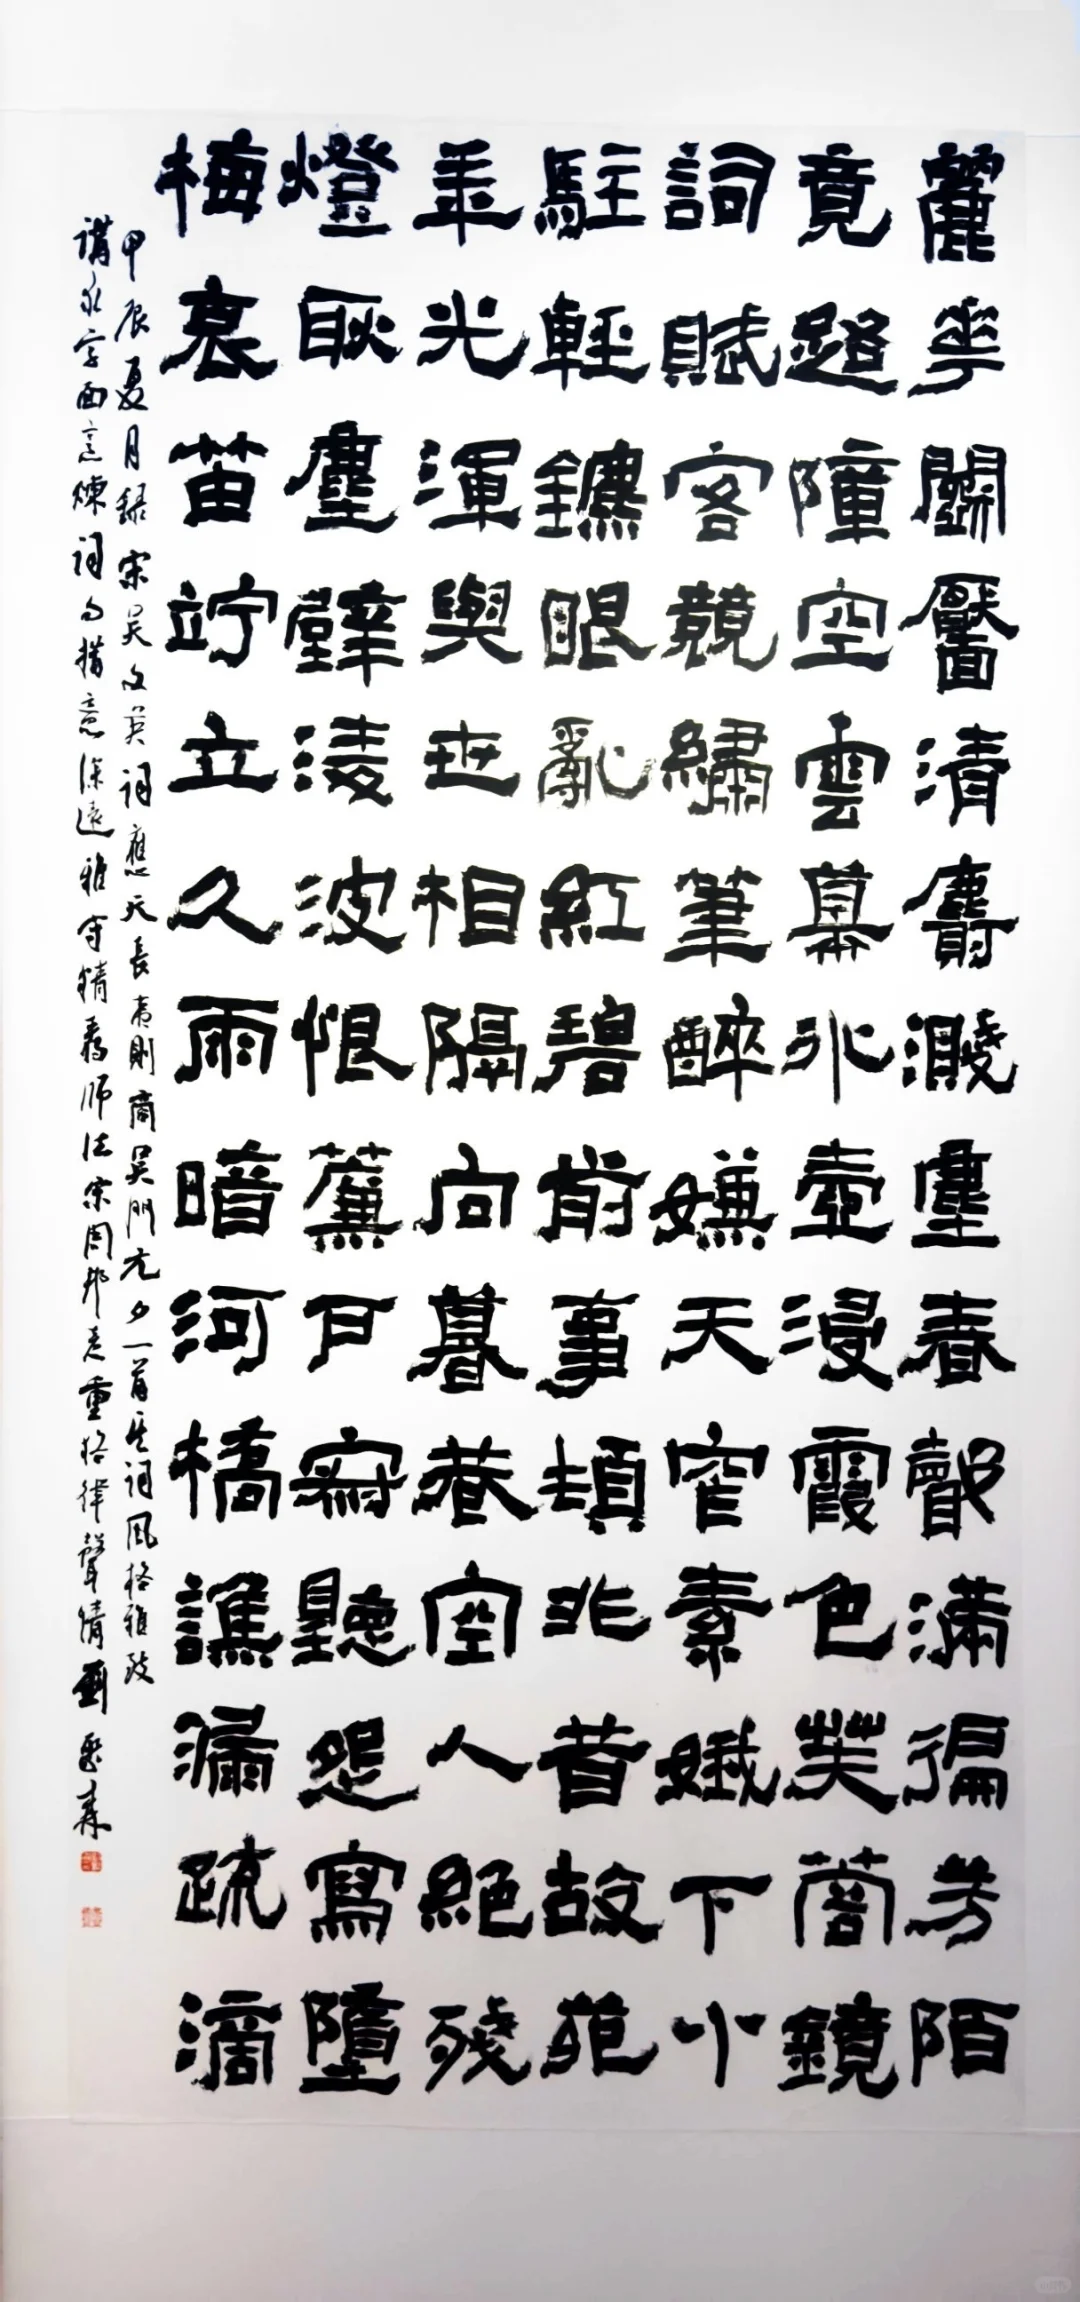 麗花鬬靨清麝濺塵春聲滿徧芳陌
竟路障空雲幕冰壺浸霞色芙蓉鏡
詞賦客競繡筆醉嫌天窄素娥下小
駐輕鑣眼亂紅碧前事頓非昔故苑
年光渾與世相隔向暮巷空人絕殘
燈耿塵壁淩波恨簾戶寂聽怨寫墮
梅哀笛竚立久雨暗河橋譙漏疏滴
甲辰夏月錄宋吳文英詞應天長夷則商吳門元夕一首其詞風格雅致
講求字面烹煉詞句措意深遠雅守精嚴師法宋周邦彥重格律聲情